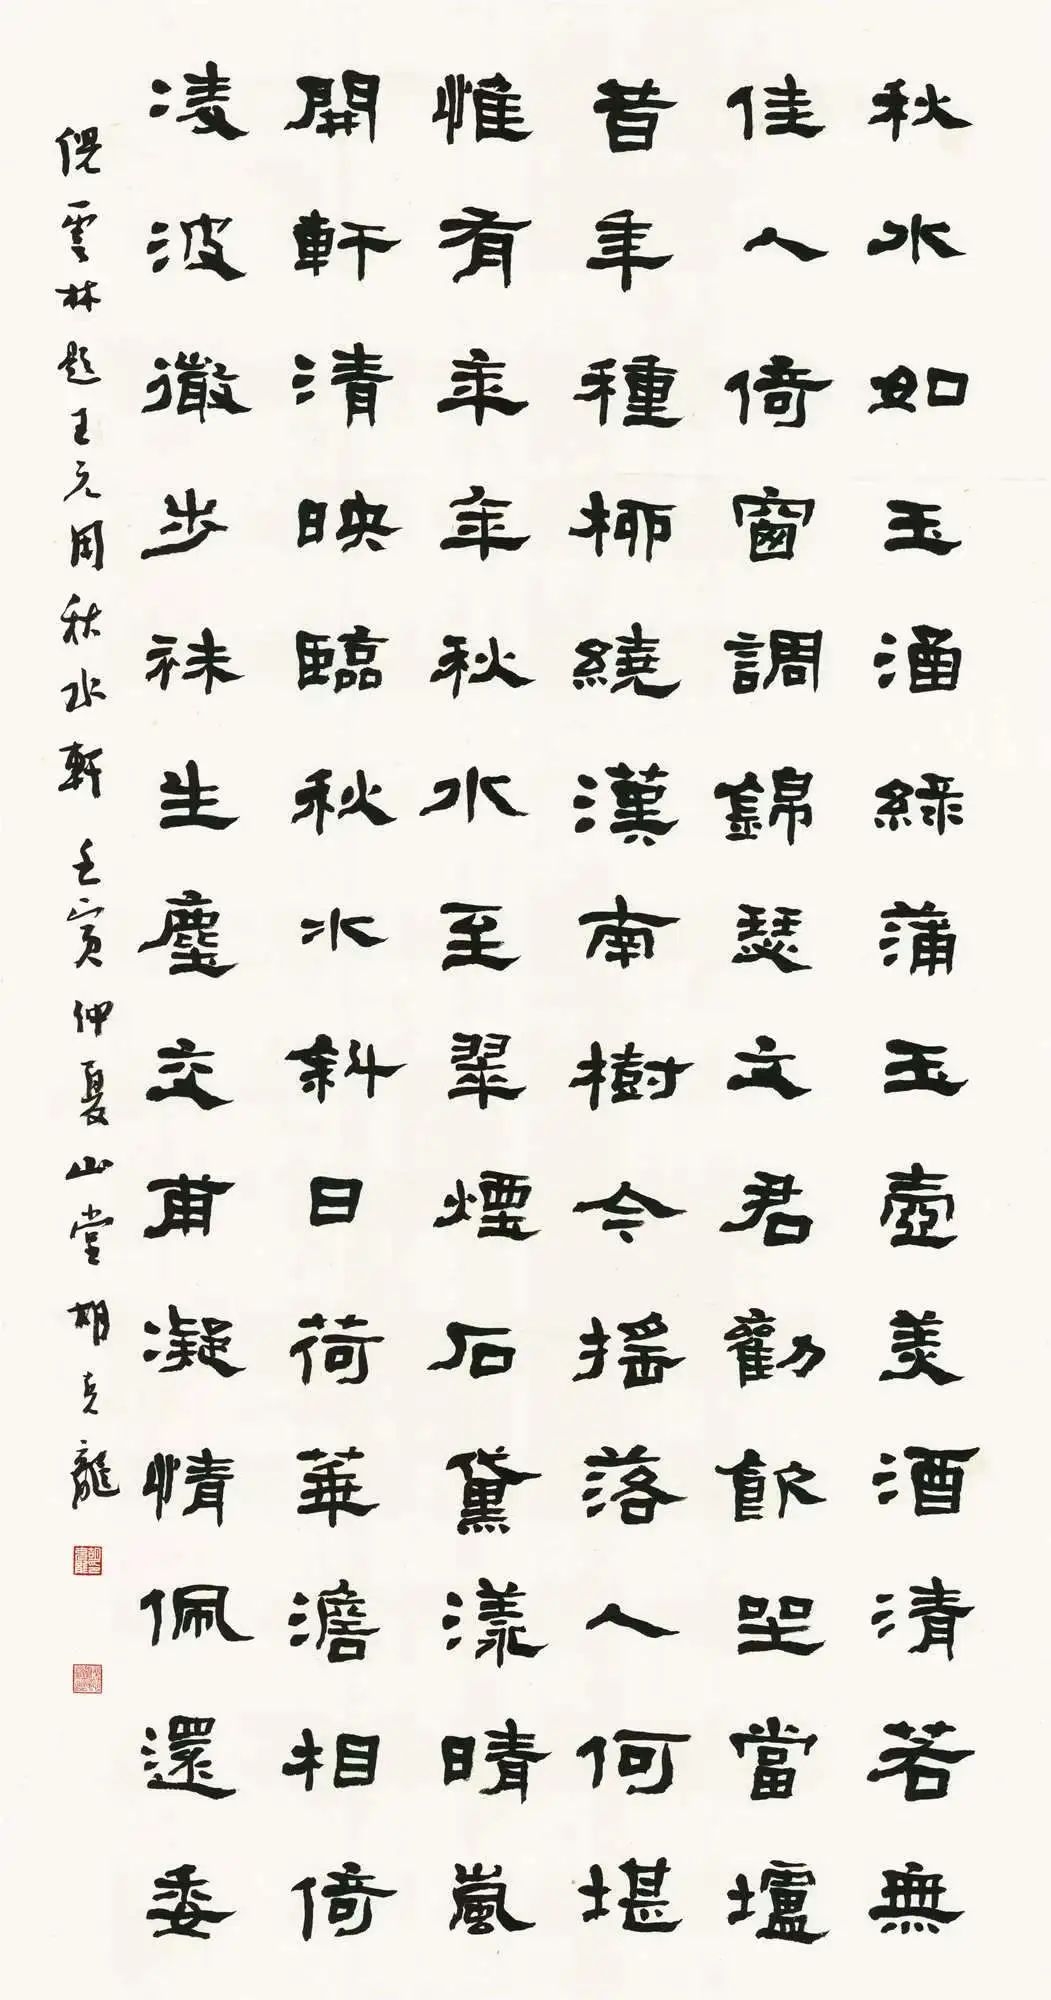 秋水如玉涵綠蒲玉壺美酒清若無
佳人倚窗調錦瑟文君勸飲坐當壚
昔年種柳繞漢南樹今搖落人何堪
惟有年年秋水至翠煙石黛漾晴嵐
開軒清映臨秋水斜日荷華澹相倚
凌波微步袜生塵交甫凝情佩還委
倪雲林題王元用秋水軒 壬寅仲夏山堂胡克龍